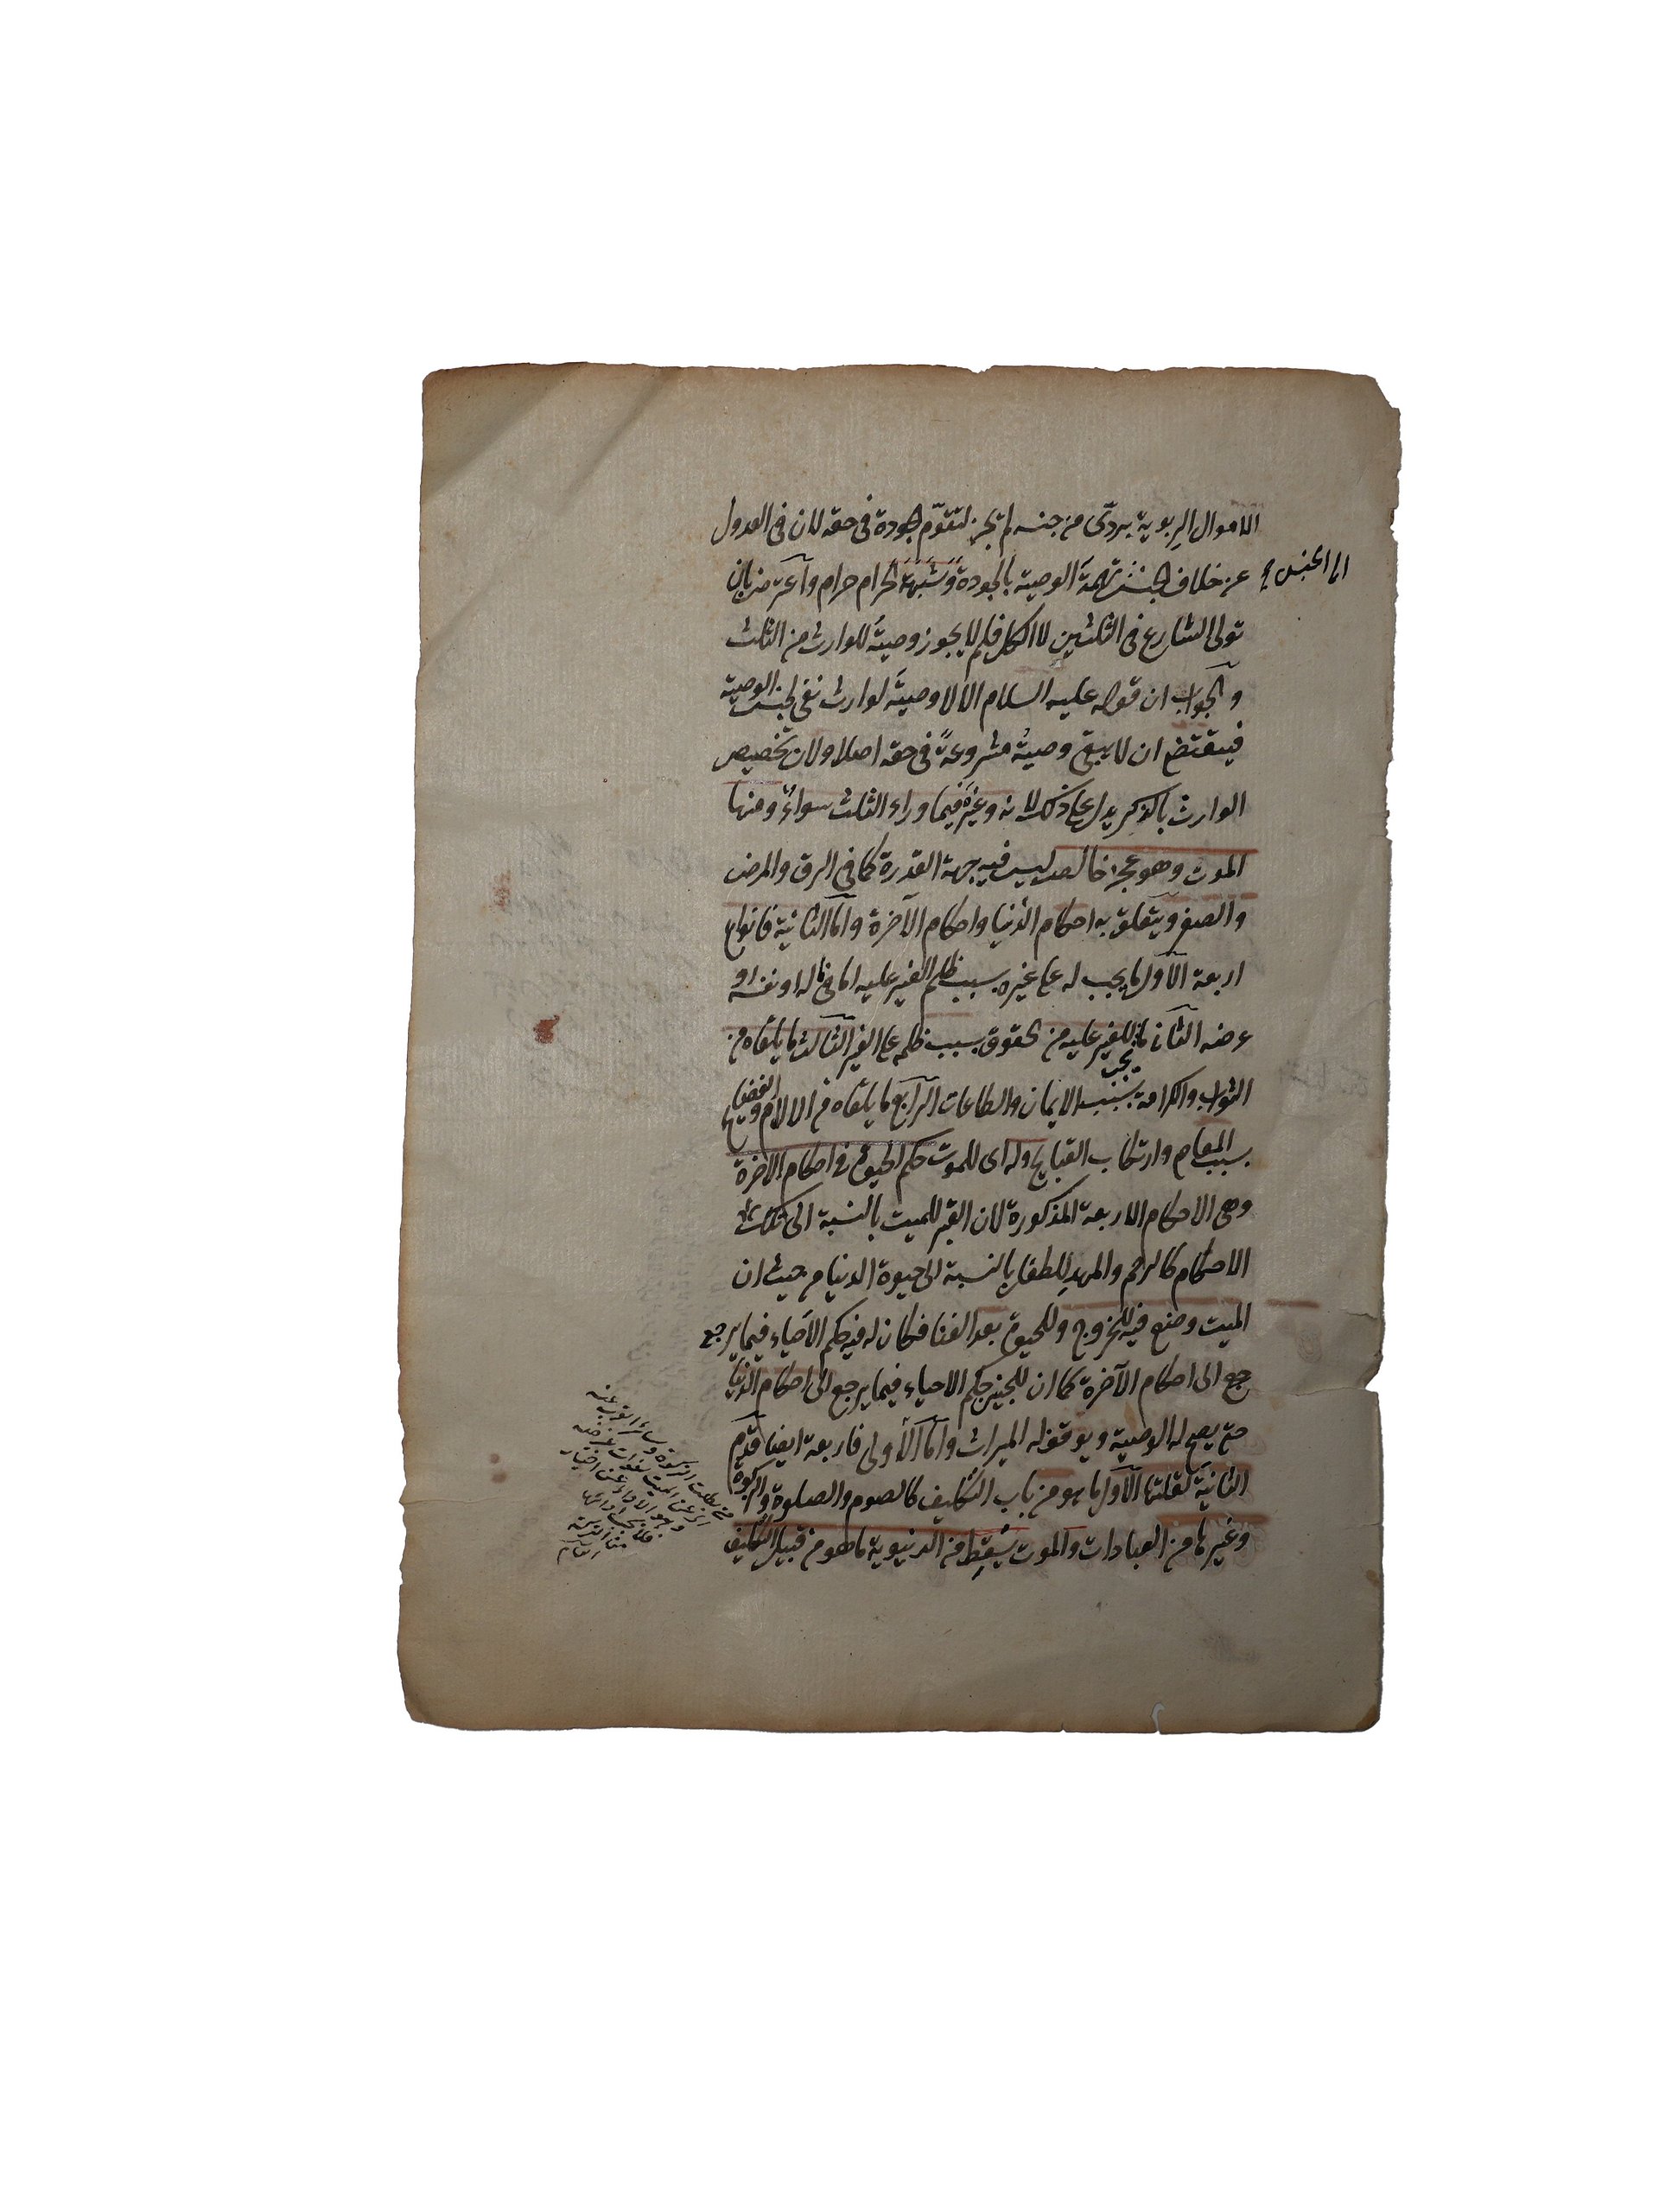 الاموال الربوية بردّى من جنسه لم تجز لتقوّم الجودة فى حقه لان فى العدول
الى الجنس
عن خلاف الجنس تهمةَ الوصية بالجودة وشبهة الحرام حرام واعترض بان
تولى الشارع فى الثلثين لا الكل فلم لا يجوز وصيةً للوارث من الثلث
والجواب ان قوله عليه السلام الا لا وصيةَ لوارث نفى لجنس الوصية
فيقتضى ان لا يبقى وصيةٌ مشروعةً فى حقه اصلا ولان تخصيص
الوارث بالذكر يدل على ذلك لانه وغيرَه فيما وراء الثلث سواءٌ ومنها
الموت وهو عجز خالص ليس فيه جهة القدرة كما فى الرق والمرض
والصغر ويتعلق به احكام الدنيا واحكام الآخرة واما الثانية فانواع
اربعة الاول ما يجب له على غيره بسبب ظلم الغير عليه اما فى ماله او نفسه او
عرضه الثانى ما للغير عليه من الحقوق بسبب ظلمه على الغير الثالث ما يلقاه من
يجب
الثواب والكرامة بسبب الايمان والطاعات الرابع ما يلقاه من الالام والفضايح
بسبب المعاصى وارتكاب القبايح وله اى للموت حكم الحيوة فى احكام الآخرة
وهى الاحكام الاربعة المذكورة لان القبر للميت بالنسبة الى تلك
الاحكام كالرحم والمهدِ للطفل بالنسبة الى حيوة الدنيا من حيث ان
الميت وضع فيه للخروج وللحيوة بعد الفنا فكان له فيه حكم الاحياء فيما يرجع
جع الى احكام الآخرة كما ان للجنين حكم الاحياء فيما يرجع الى احكام الدنيا
حتى يصح له الوصية ويوقف له الميراث واما الاولى فاربعة ايضا قدّم
الثانيةَ لقلتها الاول ما هو من باب التكليف كالصوم والصلوة والزكوة
وغيرها من العبادات والموت يُسْقِط من الدنيوية ما هو من قبيل التكليف